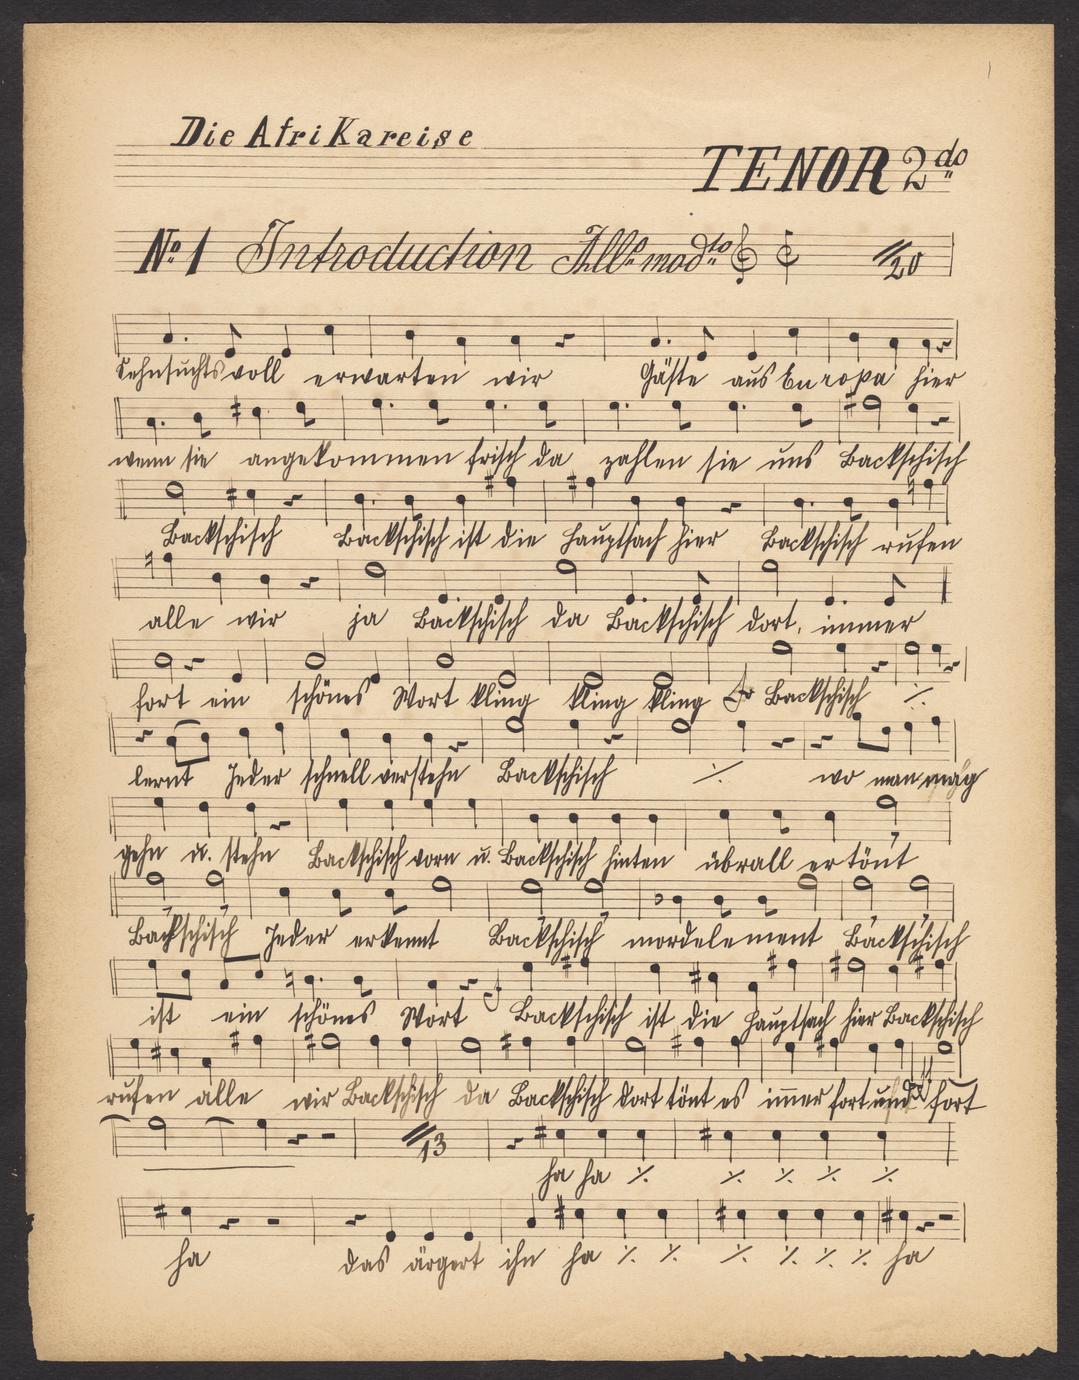 Die Afrikareise
TENOR 2do
No. 1 Introduction Allo modto 20
Sehnsuchtsvoll erwarten wir Gäste aus Europa hier
wenn sie angekommen frisch da zahlen sie uns Backschisch
Backschisch Backschisch ist die Hauptsach hier Backschisch rufen
alle wir ja Backschisch da Backschisch dort, immer
fort ein schönes Wort kling kling kling Backschisch ·/.
lernt Jeder schnell verstehn Backschisch ·/. wo man mag
gehn u. stehn Backschisch vorn u. Backschisch hinten übrall ertönt
Backschisch Jeder erkennt Backschisch mordelement Backschisch
ist ein schönes Wort Backschisch ist die Hauptsach hier Backschisch
rufen alle wir Backschisch da Backschisch dort tönt es im̅er fort und fort
13
ha ha ·/. ·/. ·/. ·/. ·/.
ha das ärgert ihn ha ·/. ·/. ·/. ·/. ·/. ·/. ha